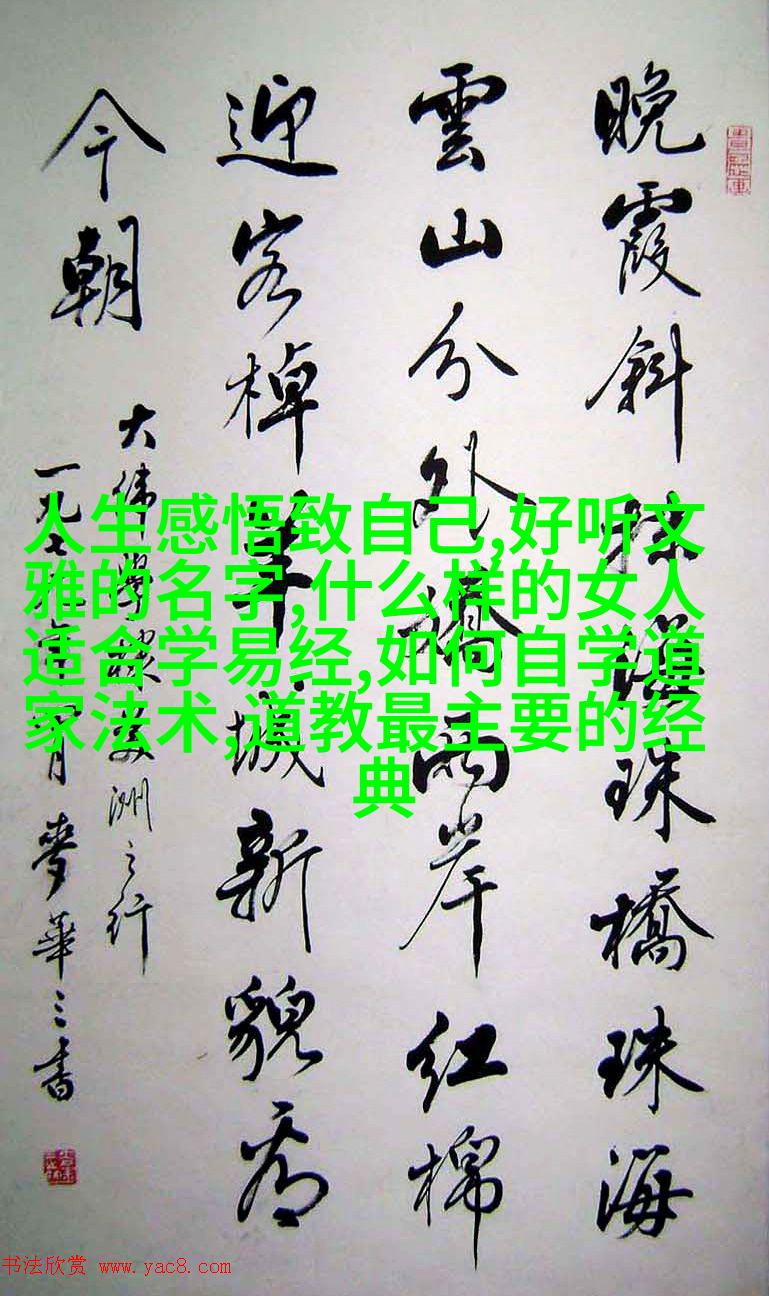 晚霞斜抹珠橋珠海
雲山分外嬌兩岸紅棉
迎客棹羊城新貌看
今朝
大偉學棣美洲之行
一九七九年月麥華三書
人生感悟致自己,好听文
雅的名字,什么样的女人
适合学易经,如何自学道
家法术,道教最主要的经
典
书法欣赏 www.yac8.com